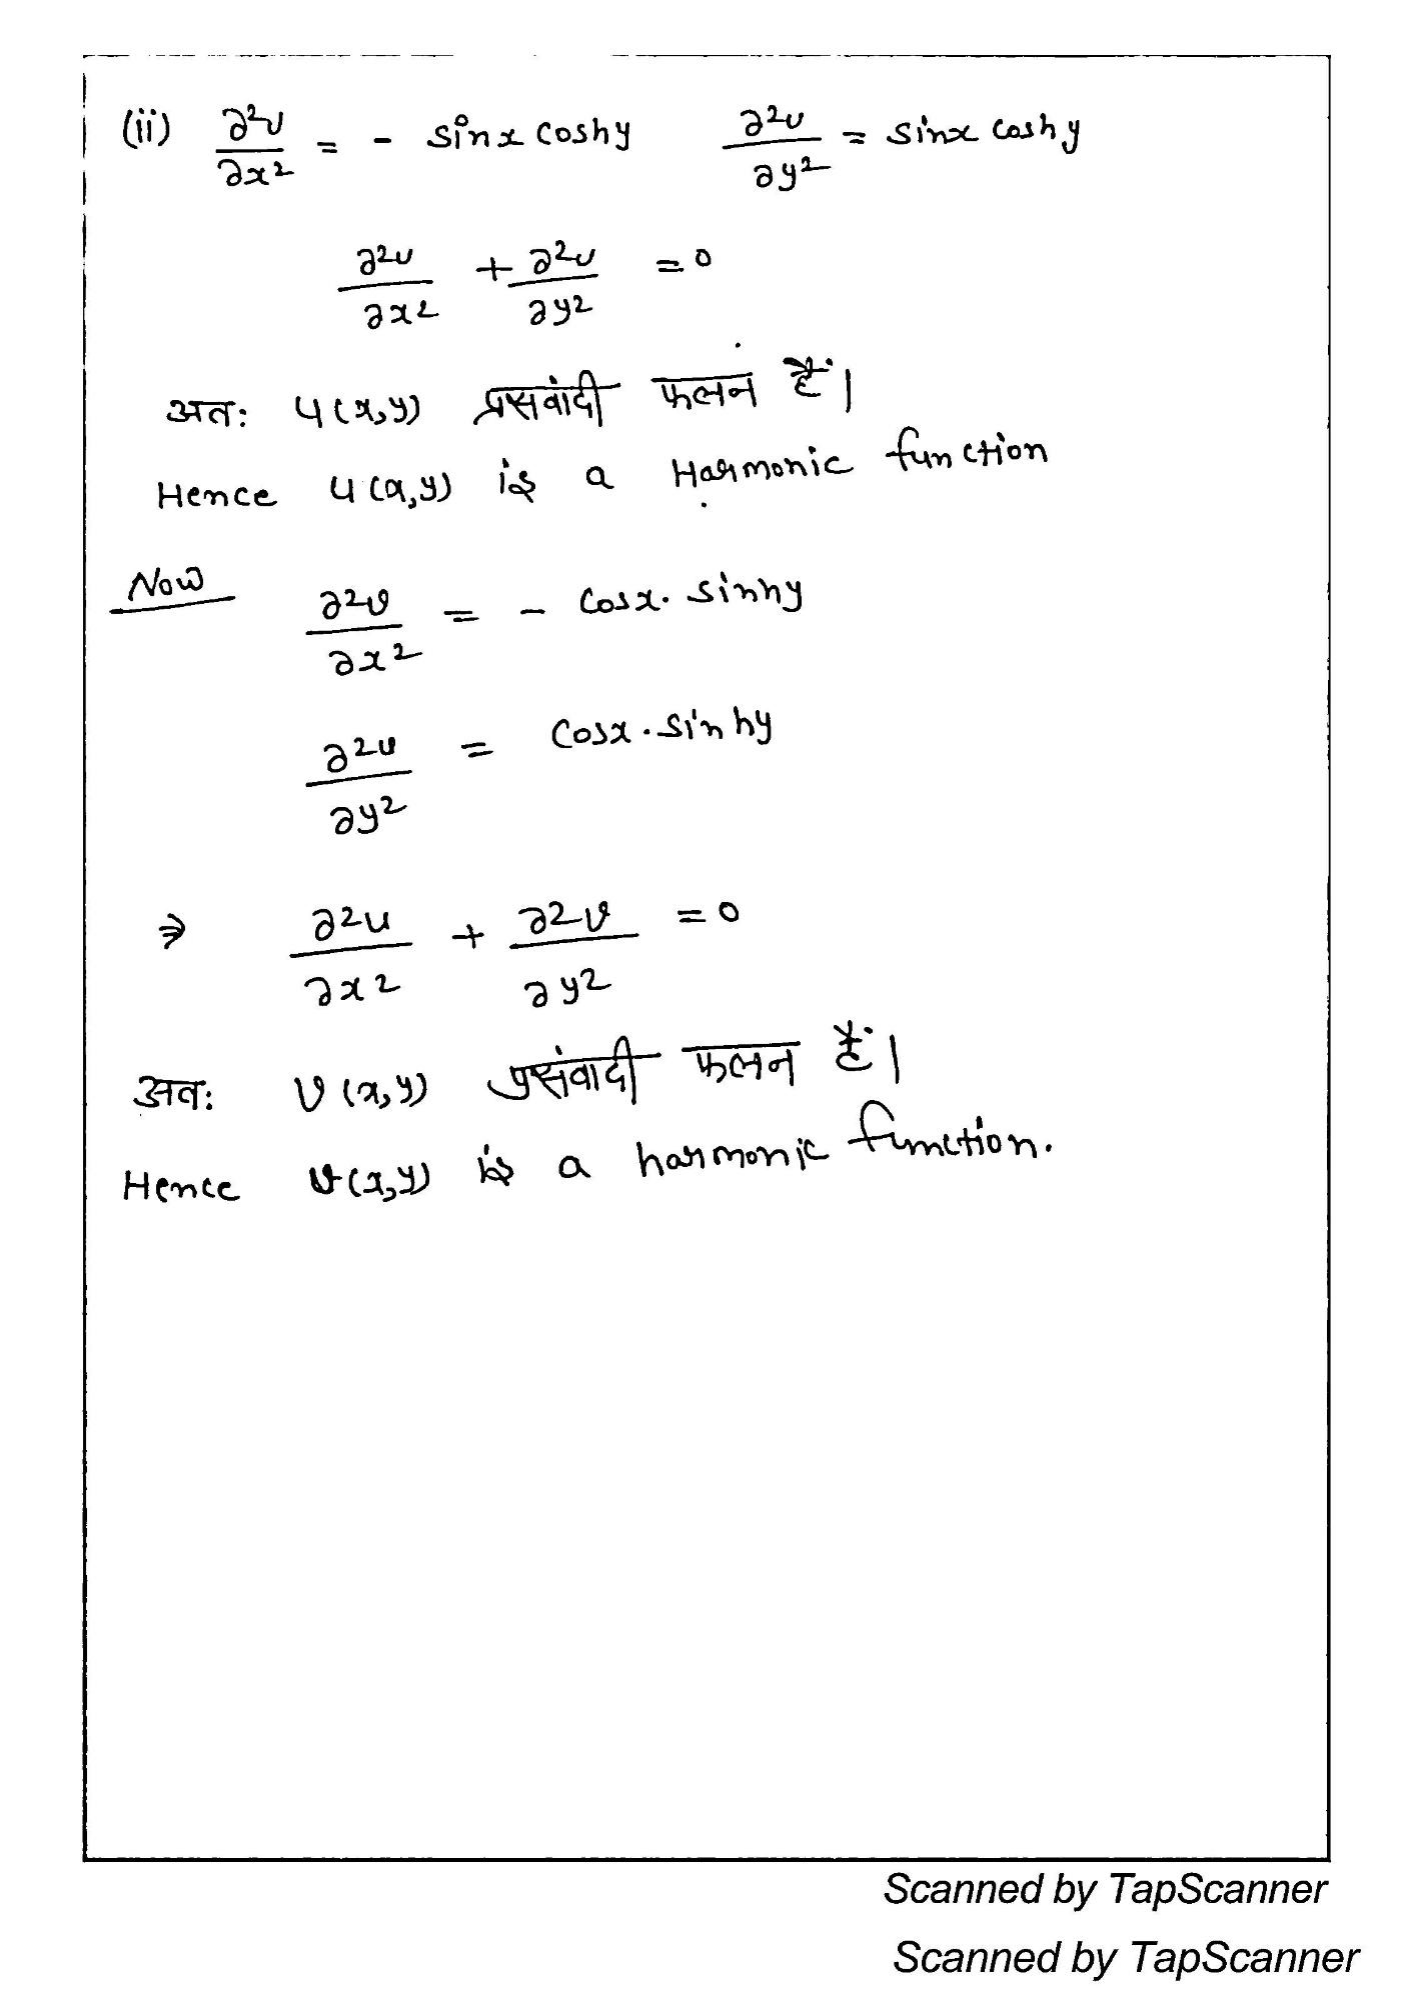 (ii) ∂²u/∂x² = - sinx coshy ∂²u/∂y² = sinx coshy
∂²u/∂x² + ∂²u/∂y² = 0
अतः u(x,y) प्रसंवादी फलन हैं।
Hence u(x,y) is a Harmonic function
Now ∂²v/∂x² = - Cosx. sinhy
∂²v/∂y² = Cosx. sinhy
⇒ ∂²u/∂x² + ∂²v/∂y² = 0
अतः v(x,y) प्रसंवादी फलन हैं।
Hence v(x,y) is a harmonic function.
Scanned by TapScanner
Scanned by TapScanner